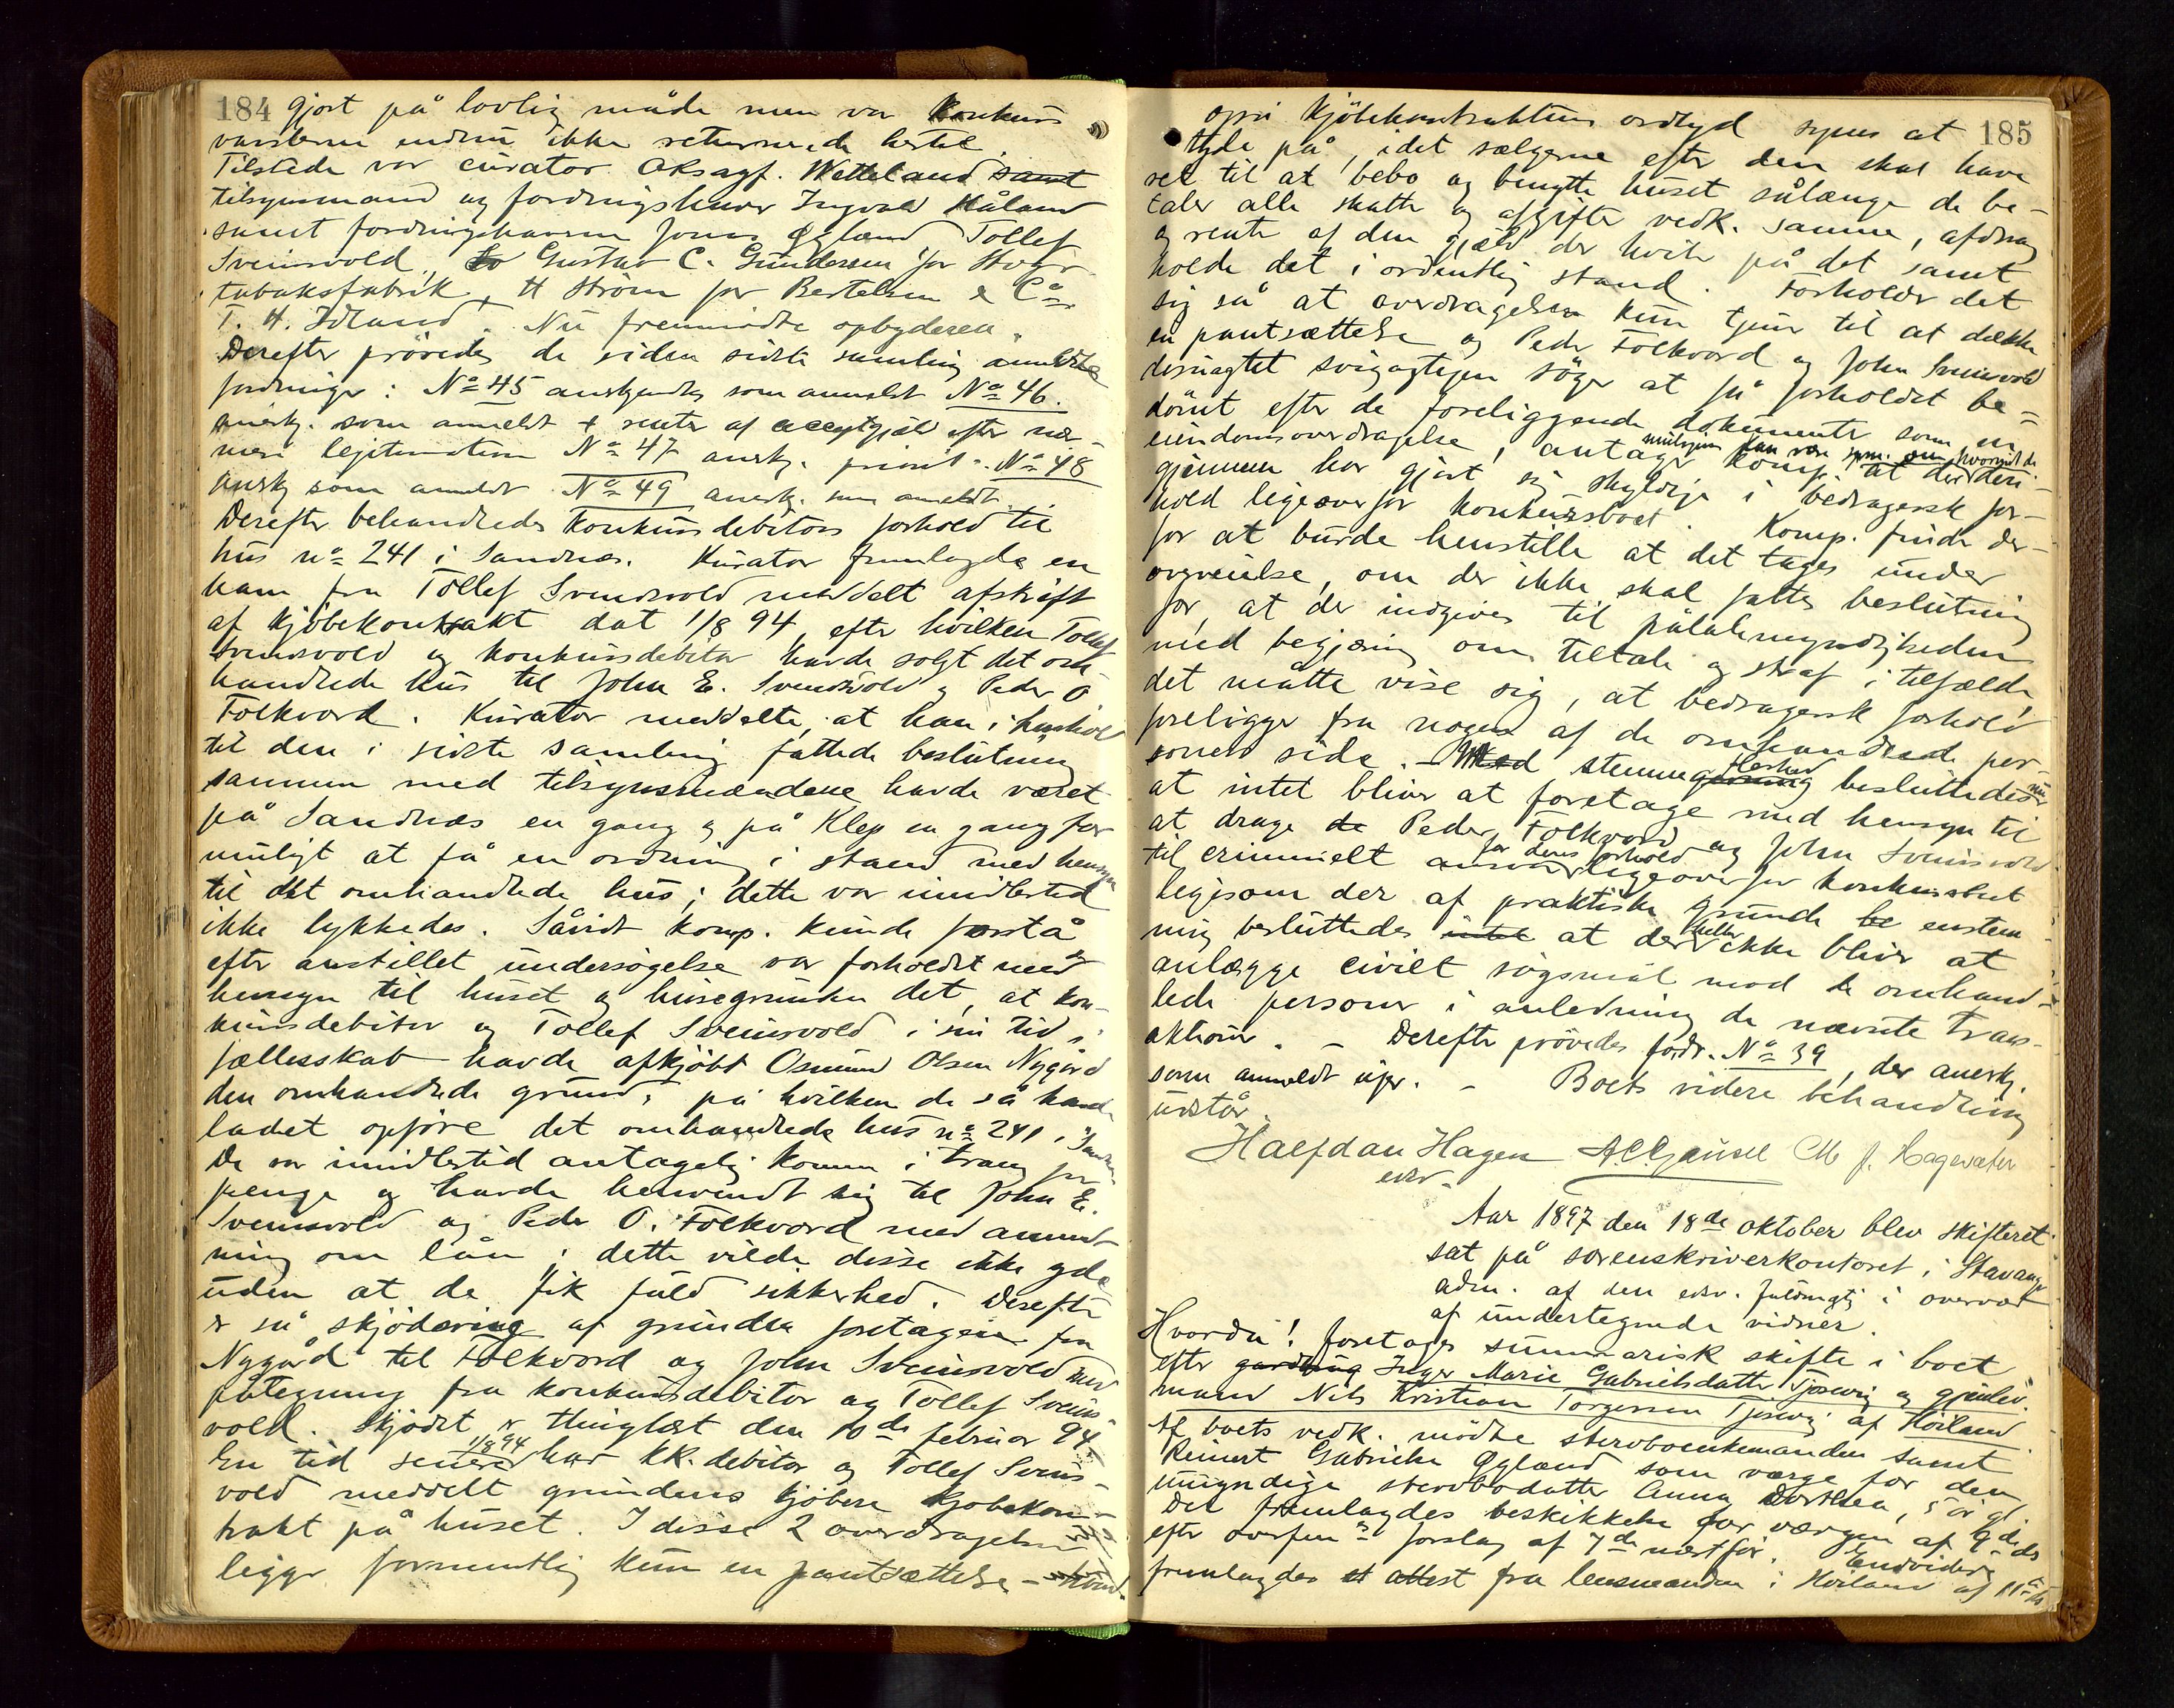 184 gjort på lovlig måde men var konkurs
varslerne endnu ikke returnerede hertil.
Tilstede var curator Oksagf. Wetteland samt
tilsynsmand og fordringshaver Ingvald Håland
samt fordringshaverne Jonas Øgland Tollef
Sveinsvold, Gustav C. Gundersen for Stvgr
tobaksfabrik, H Strøm for Bertelsen & Co
T. H. Idland. Nu fremmødte opbyderen.
Derefter prövedes de siden sidste samling anmeldte
fordringer: No 45 anerkjendtes som anmeldt No 46.
anerkj. som anmeldt + renter af acceptgjæld efter nær-
mere legitimation No 47 anerkj. priorit. No 48
anerkj som anmeldt No 49 anerkj. som anmeldt.
Derefter behandledes konkursdebitors forhold til
hus no 241 i Sandnes. Kurator fremlagde en
ham fra Tollef Svendsvold meddelt afskrift
af kjöbekontrakt dat 1/8 94, efter hvilken Tollef
Svendsvold og konkursdebitor havde solgt det om-
handlede hus til John E. Svendsvold og Peder O
Folkvord. Kurator meddelte, at han i henhold
til den i sidste samling fattede beslutning
sammen med tilsynsmændene havde været
på Sandnæs en gang og på Klep en gang for
muligt at få en ordning i stand med hensyn
til det omhandlede hus; dette var imidlertid
ikke lykkedes. Såvidt komp. kunde forstå
efter anstillet undersøgelse var forholdet med
hensyn til huset og husegrunden det, at kon-
kursdebitor og Tollef Sveinsvold i sin tid i
fællesskab havde afkjöbt Osmund Olsen Nygård
den omhandlede grund, på hvilken de så havde
ladet opføre det omhandlede hus no 241 i Sandnes
De var imidlertid antagelig kommen i trang for
penge og havde henvendt sig til John E.
Sveinsvold og Peder O. Folkvord med anmod-
ning om lån; dette vilde disse ikke yde
uden at de fik fuld sikkerhed. Derefter
er så skjödering af grunden foretagen fra
Nygård til Folkvord og John Sveinsvold med
påtegning fra konkursdebitor og Tollef Sveins-
vold. Skjödet er thinglæst den 10de februar 94.
En tid senere 1/8 94 har kk. debitor og Tollef Sveins-
vold meddelt grundens kjöbere kjøbekon-
trakt på huset. I disse 2 overdragelser
ligger formentlig kun en pantsættelse -
185
også kjöbekontraktens ordlyd synes at
tyde på, idet sælgerne efter den skal have
ret til at bebo og benytte huset sålænge de be-
taler alle skatter og afgifter vedk. samme, afdrag
og renter af den gjæld der hviler på det samt
holde det i ordentlig stand. Forholder det
sig så at overdragelsen kun tjener til at dække
en pantsættelse og Peder Folkvord og John Sveinsvold
desuagtet svigagtigen söger at få forholdet be-
dömt efter de foreliggende dokumenter som en
eiendomsoverdragelse, antager komp. at der muligens kan være spm. om hvorvidt de deri-
gjennem har gjort sig skyldige i bedragersk for-
hold ligeoverfor konkursboet. Komp. finder der-
for at burde henstille at det tages under
overveielse, om der ikke skal fattes beslutning
for, at der indgives til påtalemyndigheden
med begjæring om tiltale og straf i tilfælde,
det måtte vise sig, at bedragersk forhold
foreligger fra nogen af de omhandlede per-
soners side. - Med stemmeflerhed besluttedes nu
at intet bliver at foretage med hensyn til
at drage de Peder Folkvord og John Sveinsvold
til criminelt ansvar for deres forhold ligeoverfor konkursboet
ligesom der af praktiske grunde be enstem-
mig besluttedes intet at der heller ikke bliver at
anlægge civilt søgsmål mod de omhand-
lede personer i anledning de nævnte trans-
aktioner. - Derefter prövedes fordr. No 39, der anerkj.
som anmeldt upr. - Boets videre behandling
udstår.
Halfdan Hagen
edsv.
Aar 1897 den 18de oktober blev skifteret
sat på sorenskriverkontoret i Stavanger
adm. af den edsv. fuldmægtig i overvær
af undertegnede vidner.
Hvorda! foretoges summarisk skifte i boet
efter Inger Marie Gabrielsdatter Tjosevig og gjenlev.
mand Nils Kristian Torgersen Tjosevig af Höiland
Af boets vedk. mødte stervboenkemanden samt
Reinert Gabrielsen Øgland som værge for den
umyndige stervbodatter Anna Dorthea, 5 år gl.
Der fremlagdes beskikkelse for værgen af 9de ds
efter overform. forslag af 7de næstfor. Endvidere
fremlagdes et attest fra lensmanden i Höiland af 11te ds